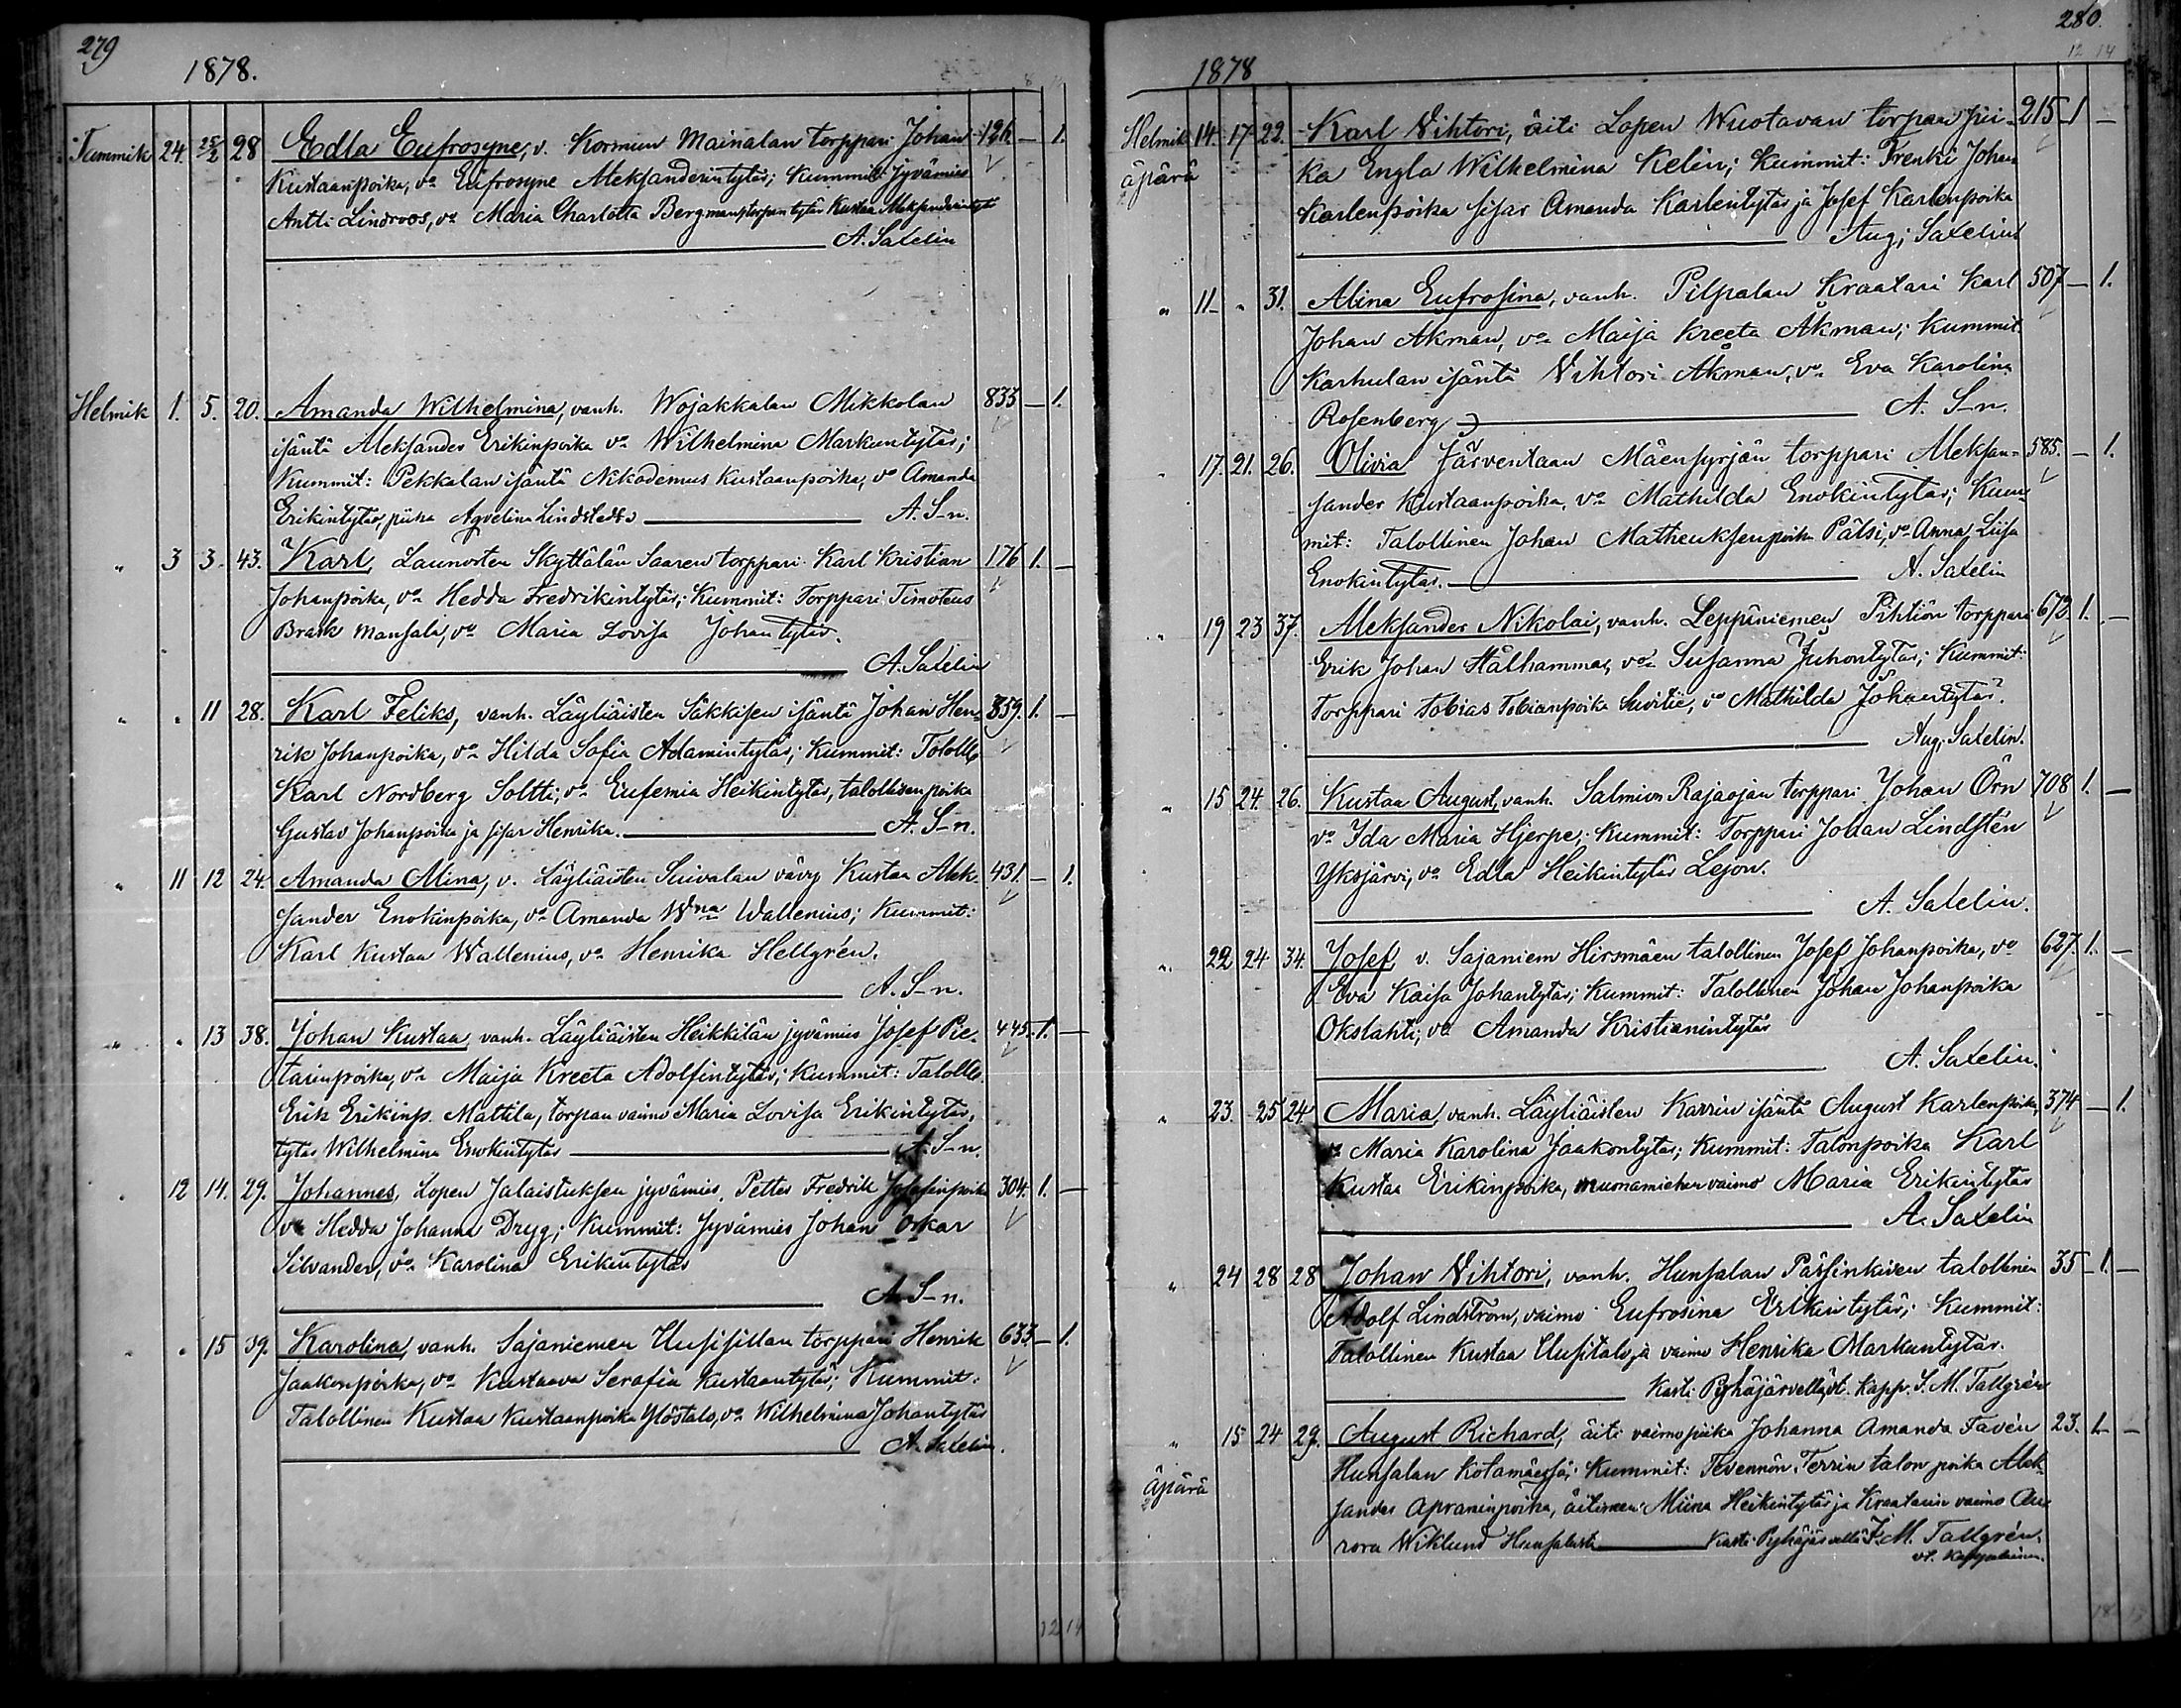 279
1878.
Tammik 24. 25/2 28 Edla Eufrosyne, v. Kormun Mainalan torppari Johan 126. — 1.
Kustaanpoika, vo Eufrosyne Aleksanderintytär; Kummit: Jyvämies
Antti Lindroos, vo Maria Charlotta Bergman, torpan tytär Kustaa Aleksanderintytär
A. Saxelin
Helmik 1. 5. 20. Amanda Wilhelmina, vanh. Wojakkalan Mikkolan 833 — 1.
isäntä Aleksander Erikinpoika vo Wilhelmina Markuntytär;
Kummit: Pekkalan isäntä Nikodemus Kustaanpoika, vo Amanda
Erikintytär, piika Aqvelina Lindstedt A. S-n.
„ 3 3. 43. Karl, Launosten Skyttälän Saaren torppari Karl Kristian 176 1. —
Johanpoika, vo Hedda Fredrikintytär; Kummit: Torppari Timoteus
Brask Mansala, vo Maria Lovisa Johantytär.
A. Saxelin
„ „ 11 28. Karl Feliks, vanh. Läyliäisten Säkkisen isäntä Johan Hen- 359. 1. —
rik Johanpoika, vo Hilda Sofia Adamintytär; Kummit: Taloll.
Karl Nordberg Soltti, vo Eufemia Heikintytär, talollisen poika
Gustav Johanpoika ja sisar Henrika. A. S-n.
„ 11 12 24. Amanda Alina, v. Läyliäisten Suivalan vävy Kustaa Alek- 431. — 1.
sander Enokinpoika, vo Amanda Wna Wallenius; Kummit:
Karl Kustaa Wallenius, vo Henrika Hellgrén.
A. S-n.
„ „ 13 38. Johan Kustaa, vanh. Läyliäisten Heikkilän jyvämies Josef Pie- 445. 1. —
tarinpoika, vo Maija Kreeta Adolfintytär; Kummit: Taloll.
Erik Erikinp. Mattila, torpan vaimo Maria Lovisa Erikintytär,
tytär Wilhelmina Enokintytär A. S-n.
„ 12 14. 29. Johannes, Lopen Jalaistuksen jyvämies, Petter Fredrik Josefinpoika 304. 1. —
vo Hedda Johanna Dryg; Kummit: Jyvämies Johan Oskar
Silvander, vo Karolina Erikintytär
A. S-n.
„ „ 15 39. Karolina, vanh. Sajaniemen Uusisillan torppari Henrik 633. — 1.
Jaakonpoika, vo Kustaava Serafia Kustaantytär; Kummit:
Talollinen Kustaa Kustaanpoika Ylöstalo, vo Wilhelmina Johantytär
A. Saxelin.
12 14
280.
12 14
1878
Helmik 14. 17 22. Karl Vihtori, äiti Lopen Wuotavan torpan pii- 215 1 —
äpärä ka Engla Wilhelmina Kelin; Kummit: Trenki Johan
Karlenpoika sisar Amanda Karlentytär ja Josef Karlenpoika
Aug. Saxelin
„ 11 „ 31. Alina Eufrosina, vanh. Pilpalan Kraatari Karl 507 — 1.
Johan Åkman, vo Maija Kreeta Åkman; Kummit
Karhulan isäntä Vihtori Åkman, vo Eva Karolina
Rosenberg A. S-n.
„ 17. 21. 26. Olivia Järventaan Mäensyrjän torppari Aleksan- 585. — 1.
sander Kustaanpoika, vo Mathilda Enokintytär; Kum-
mit: Talollinen Johan Matheuksenpoika Pätsi, vo Anna Liisa
Enokintytär. A. Saxelin
„ 19 23 37. Aleksander Nikolai, vanh. Leppäniemen Pihtiön torppari 672 1. —
Erik Johan Stålhammar, vo Susanna Juhontytär; Kummit:
Torppari Tobias Tobianpoika, vo Mathilda Johantytär.
Aug. Saxelin.
„ 15 24. 26. Kustaa August, vanh. Salmion Rajaojan torppari Johan Örn 708 1. —
vo Ida Maria Hjerpe; Kummit: Torppari Johan Lindstén
Yksjärvi, vo Edla Heikintytär Lejon.
A. Saxelin.
„ 22 24 34. Josef, v. Sajaniem Hirsmäen talollinen Josef Johanpoika, vo 627. 1. —
Eva Kaisa Johantytär; Kummit: Talollinen Johan Johanpoika
Okslahti, vo Amanda Kristianintytär
A. Saxelin.
„ 23. 25 24. Maria, vanh. Läyliäisten Karrin isäntä August Karlenpoika, 374 — 1.
vo Maria Karolina Jaakontytär; Kummit: Talonpoika Karl
Kustaa Erikinpoika, muonamiehen vaimo Maria Erikintytär
A. Saxelin
„ 24 28 28 Johan Vihtori, vanh. Hunsalan Pässinkiven talollinen 35 1. —
Adolf Lindström, vaimo Eufrosina Erikintytär; Kummit:
Talollinen Kustaa Uusitalo ja vaimo Henrika Markuntytär.
Kasti Pyhäjärvellä, vt. Kapp. J. M. Tallgrén
„ 15 24 29. August Richard, äiti vaimopiika Johanna Amanda Favén 23. 1. —
äpärä Hunsalan Kotamäessä; Kummit: Tevännön Terrin talon poika Alek-
sander Apraminpoika, äitinsä Miina Heikintytär ja Kraatarin vaimo Au-
rora Wiklund Hunsalasta Kasti Pyhäjärvellä J. M. Tallgrén.
vt. Kappalainen.